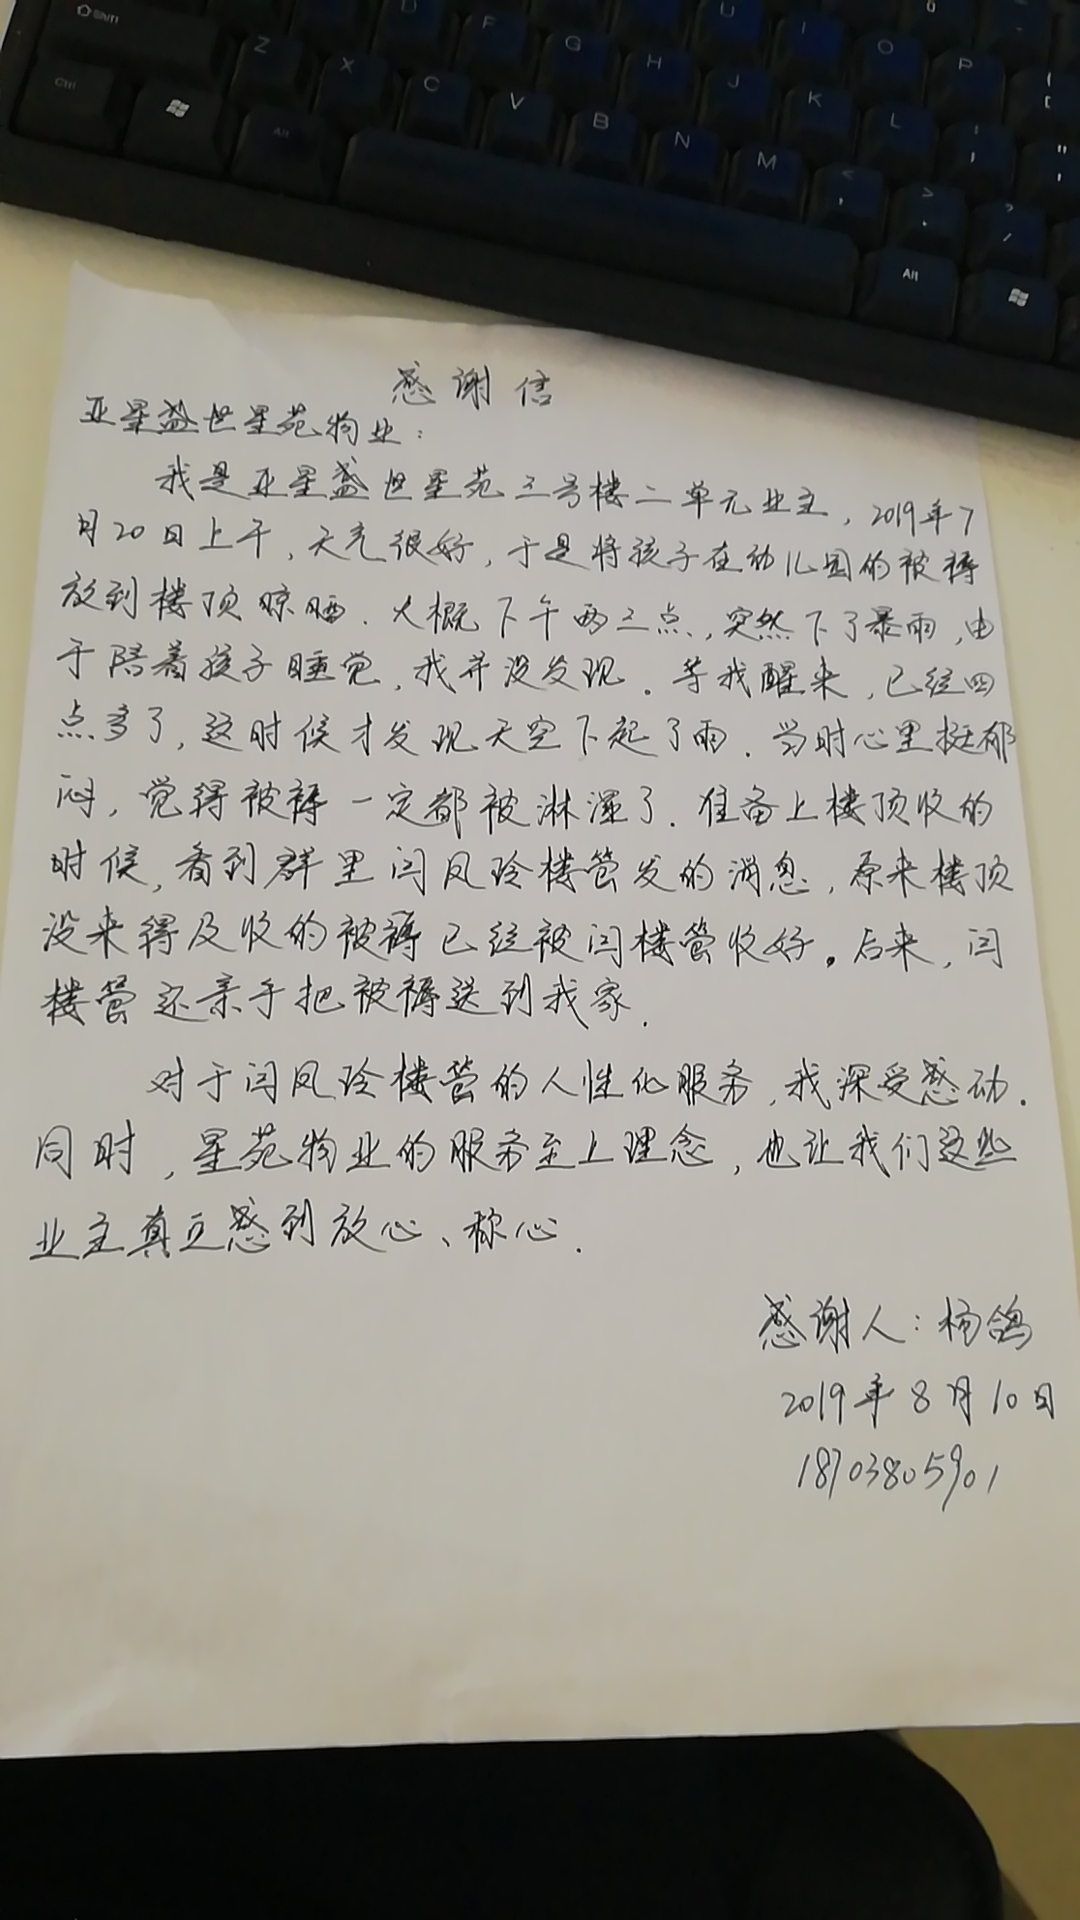 SHIFT D F G H J U I O P
Z X C V B N M K L
Ctrl Alt Alt
感谢信
亚星盛世星苑物业：
我是亚星盛世星苑三号楼二单元业主，2019年7
月20日上午，天气很好，于是将孩子在幼儿园的被褥
放到楼顶晾晒．大概下午两三点，突然下了暴雨，由
于陪着孩子睡觉，我并没发现．等我醒来，已经四
点多了，这时候才发现天空下起了雨．当时心里挺郁
闷，觉得被褥一定都被淋湿了．准备上楼顶收的
时候，看到群里闫凤玲楼管发的消息，原来楼顶
没来得及收的被褥已经被闫楼管收好。后来，闫
楼管还亲手把被褥送到我家．
对于闫凤玲楼管的人性化服务，我深受感动．
同时，星苑物业的服务至上理念，也让我们这些
业主真正感到放心、称心．
感谢人：杨鸽
2019年8月10日
18703805901